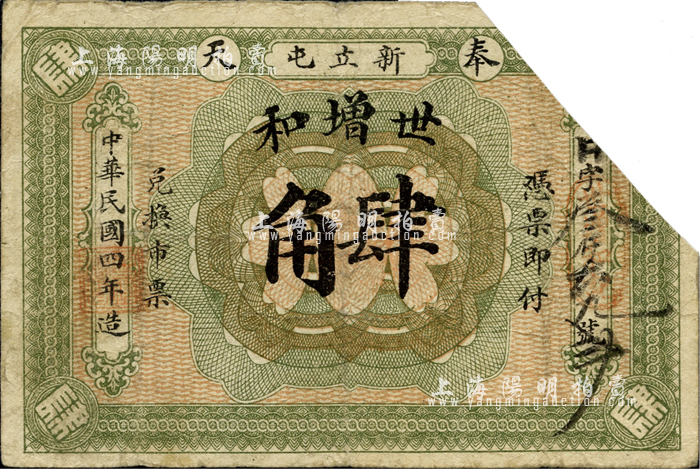 奉天
新立屯
世增和
肆角
憑票即付
兌換市票
中華民國四年造
日字
號
上海陽明拍賣
www.yangmingauction.com
上海陽明拍賣
www.yangmingauction.com
上海陽明拍賣
www.yangmingauction.com